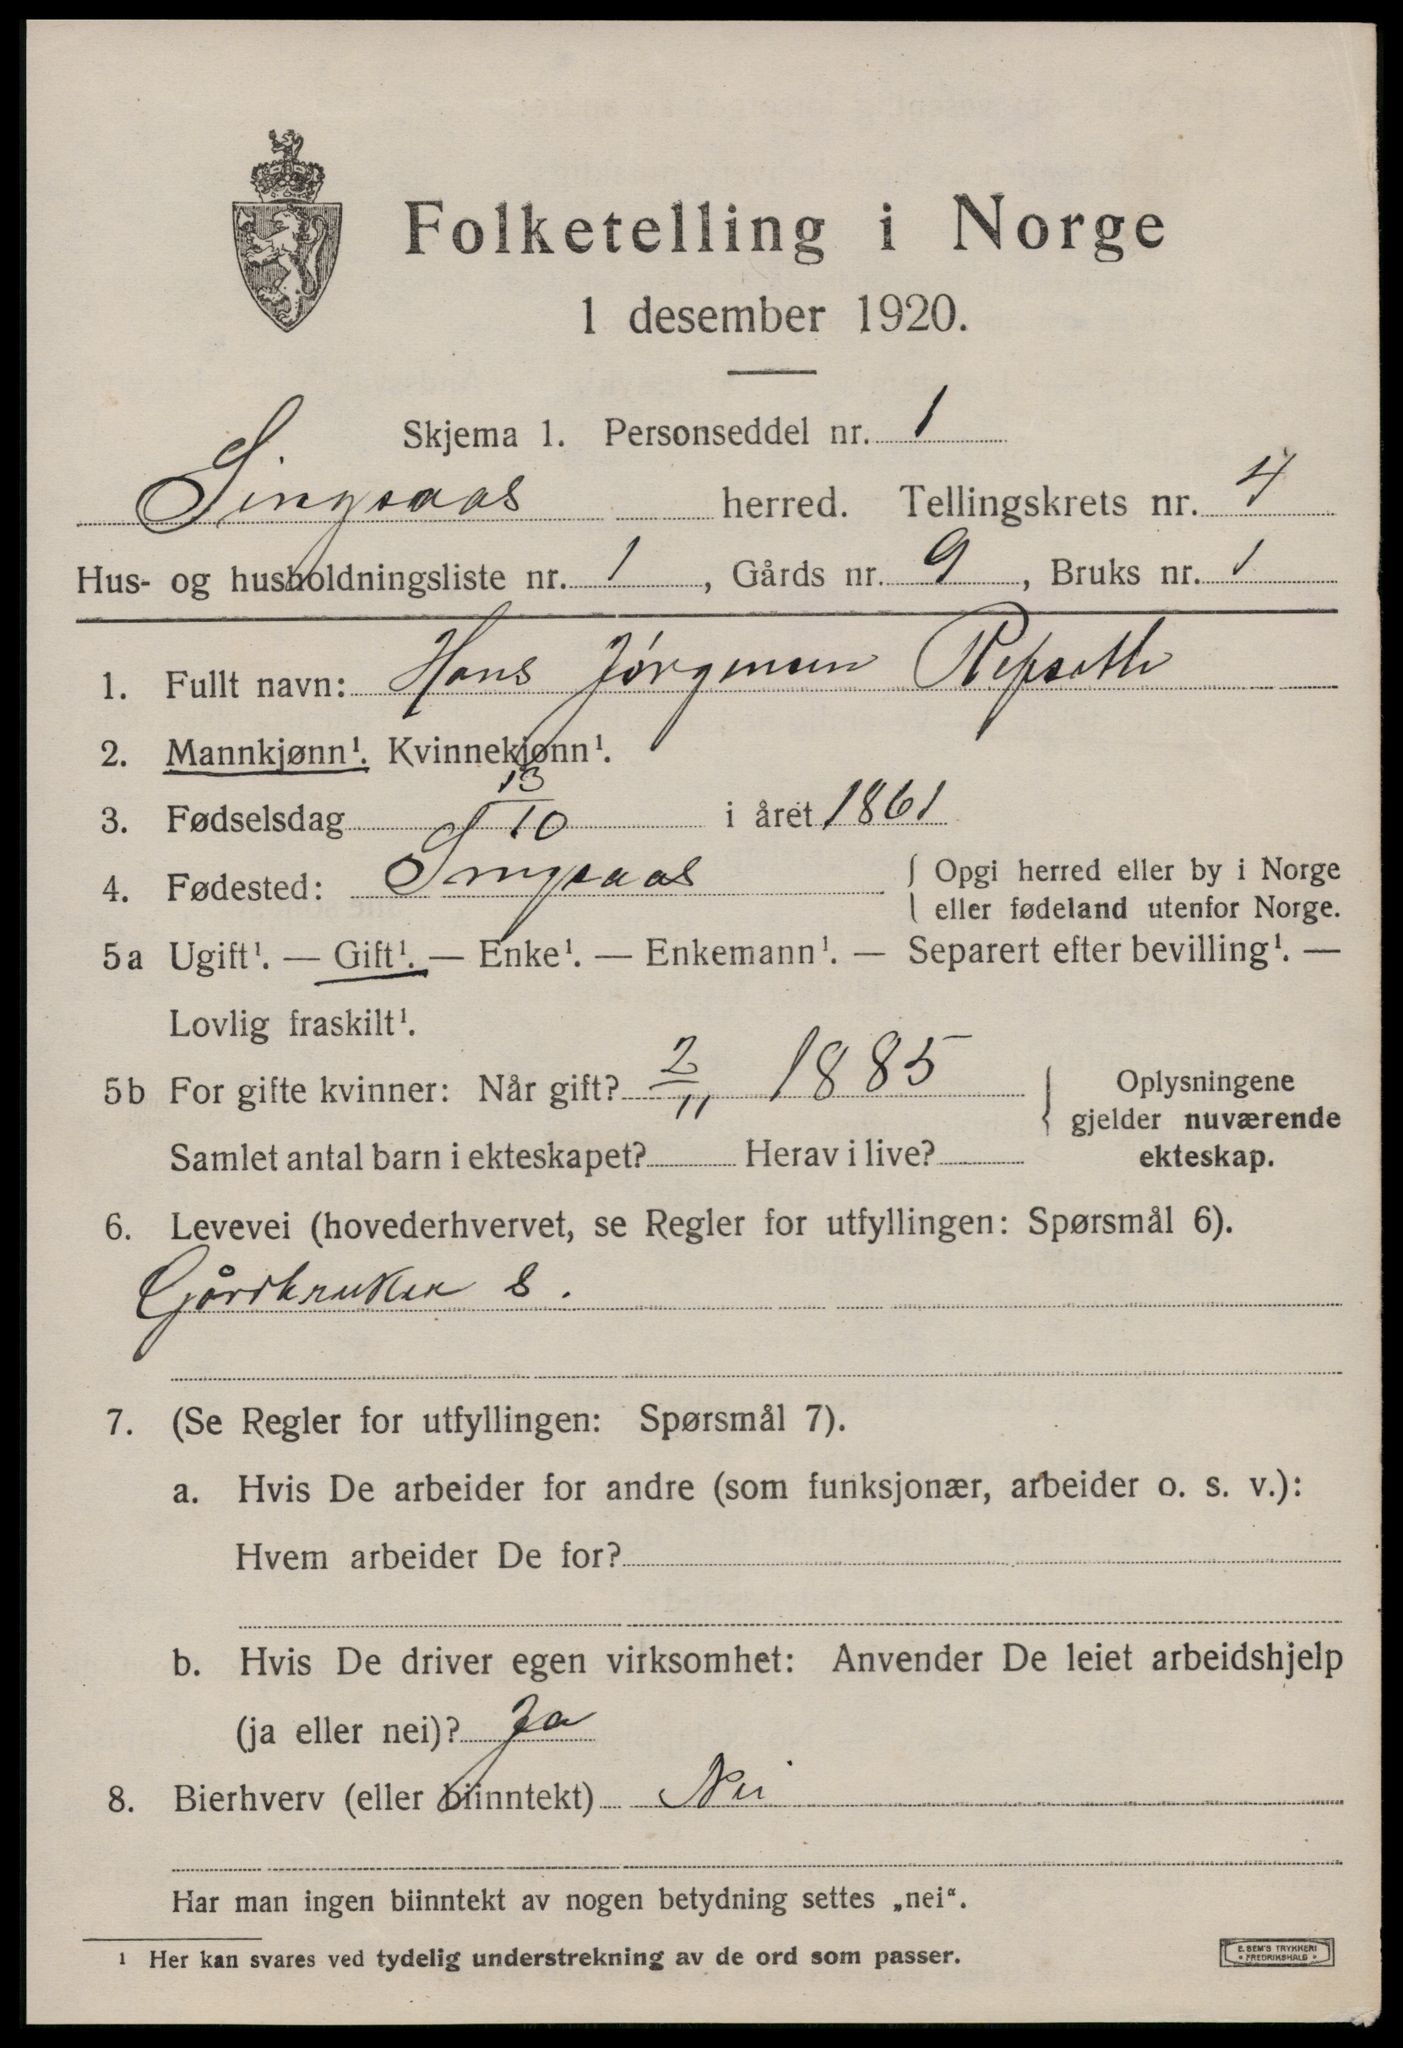 Folketelling i Norge
1 desember 1920.
Skjema 1. Personseddel nr. 1
Singsaas herred. Tellingskrets nr. 4
Hus- og husholdningsliste nr. 1, Gårds nr. 9, Bruks nr. 1
1. Fullt navn: Hans Jørgensen Refseth
2. Mannkjønn¹. Kvinnekjønn¹.
3. Fødselsdag 13/10 i året 1861
4. Fødested: Singsaas { Opgi herred eller by i Norge
eller fødeland utenfor Norge.
5a Ugift¹. — Gift¹. — Enke¹. — Enkemann¹. — Separert efter bevilling¹. —
Lovlig fraskilt¹.
5b For gifte kvinner: Når gift? 2/11 1885 { Oplysningene
gjelder nuværende
ekteskap.
Samlet antal barn i ekteskapet? Herav i live?
6. Levevei (hovederhvervet, se Regler for utfyllingen: Spørsmål 6).
Gårdbruker S.
7. (Se Regler for utfyllingen: Spørsmål 7).
a. Hvis De arbeider for andre (som funksjonær, arbeider o. s. v.):
Hvem arbeider De for?
b. Hvis De driver egen virksomhet: Anvender De leiet arbeidshjelp
(ja eller nei)? Ja
8. Bierhverv (eller biinntekt) Nei
Har man ingen biinntekt av nogen betydning settes „nei“.
¹ Her kan svares ved tydelig understrekning av de ord som passer.
E. SEM'S TRYKKERI
• FREDRIKSHALD •